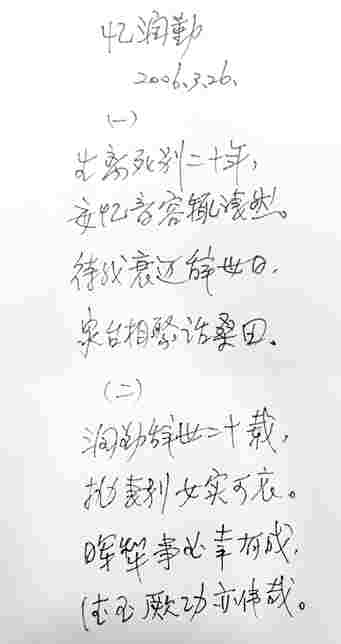 忆润勤
2006.3.26.
(一)
生离死别二十年，
每忆音容辄潸然。
待我衰迈辞世日，
泉台相聚话桑田。
(二)
润勤辞世二十载，
抛妻别女实可哀。
事业幸有成，
厥功亦伟哉。